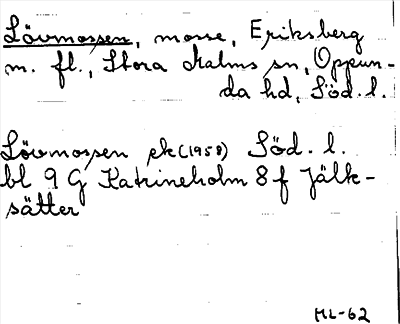 Lövmossen, mosse, Eriksberg
m. fl., Stora Malms sn, Oppun-
da hd, Söd. l.
Lövmossen ek (1958) Söd. l.
bl 9 G Katrineholm 8 f Jälk-
sätter
ML-62